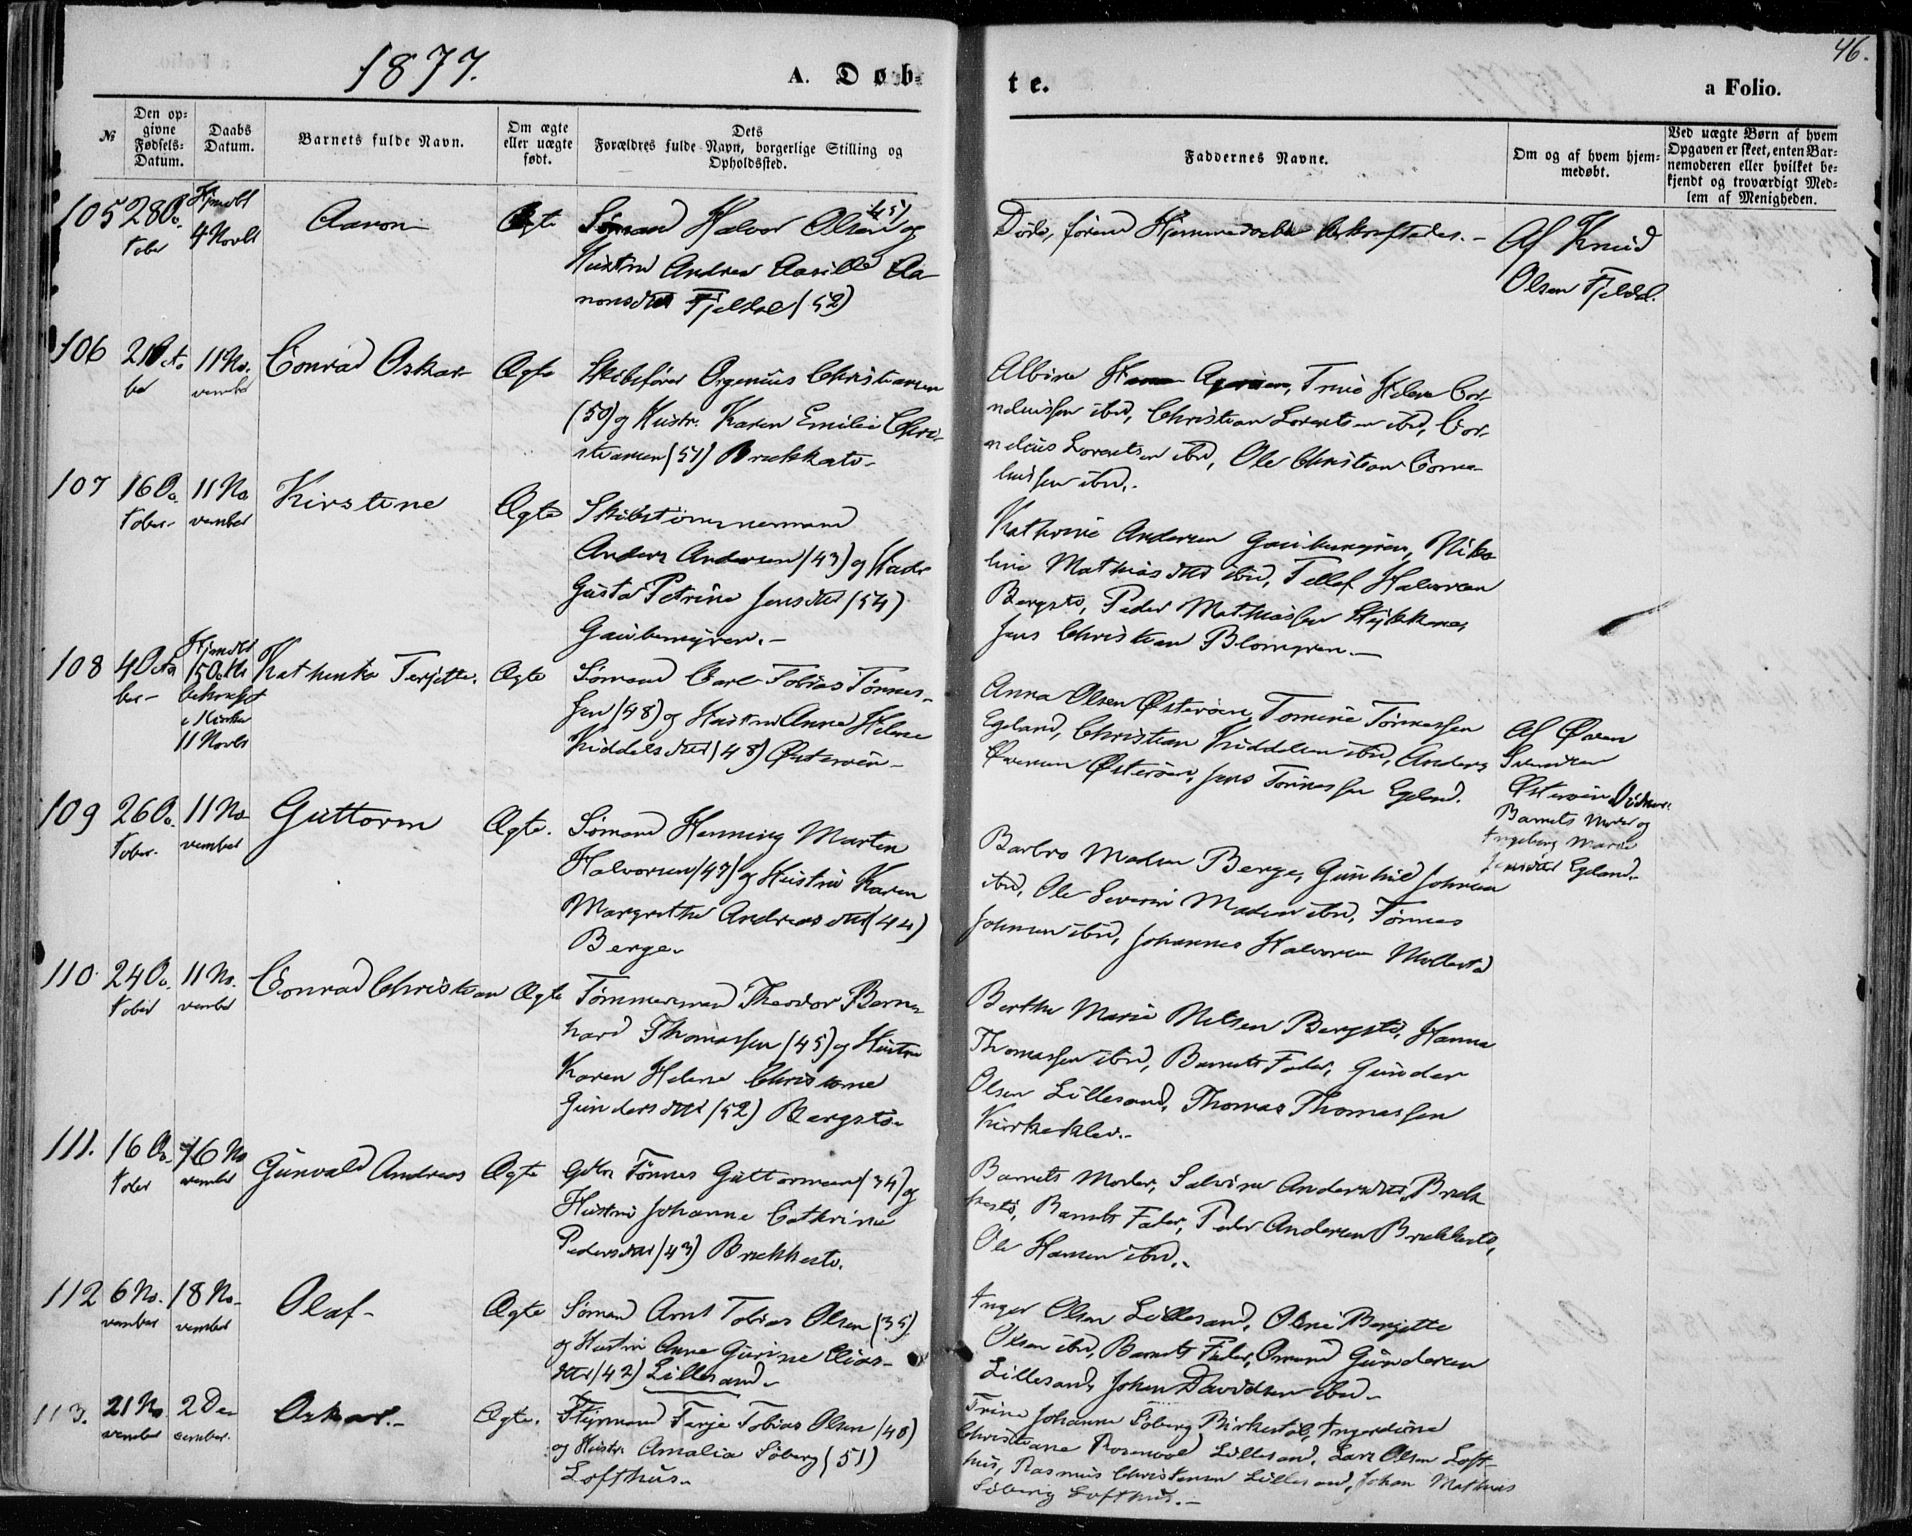 1877.
A. Døb-
te.
a Folio.
46.
№
Den op-
givne
Fødsels-
Datum.
Daabs
Datum.
Barnets fulde Navn.
Om ægte
eller uægte
født.
Dets
Forældres fulde Navn, borgerlige Stilling og
Opholdssted.
Faddernes Navne.
Om og af hvem hjem-
medøbt.
Ved uægte Børn af hvem
Opgaven er skeet, enten Bar-
nemoderen eller hvilket be-
kjendt og troværdigt Med-
lem af Menigheden.
105 28 Oc-
tober
Hjmdbt
4 Novbr
Aanon
Ægte
Sømand Halvor Olsen (45) og
Hustru Andrea Aasille Aa-
nonsdttr Fjeldal (52)
Døde, førend Hjemmedaaben bekræftedes. -
Af Knud
Olsen Fjeldal.
106 21 Octo
ber
11 No-
vember
Conrad Oskar
Ægte
Skibsfører Orgenius Christiansen
(50) og Hustr. Karen Emilie Chri-
stiansen (51) Brækkestø -
Albine Trine Helene Cor-
neliussen ibid, Christian Lorentsen ibid, Cor-
nelius Lorentsen ibid, Ole Christian Corne-
liussen ibid. -
107 16 Oc-
tober -
11 No-
vember
Kirstine
Ægte
Skibstømmermand
Anders Andersen (43) og
Gusta Petrine Jensdttr (54)
Gaubemyren. -
Kathrine Andersen Gaubemyren, Niko-
line Mathiasdttr ibid, Tellef Halvorsen
Bergstø, Peder Mathiassen
Jens Christian Blomgren. -
108 4 Octo
ber -
Hjmdbt
15 Octbr
bekræft
i Kirken
11 Novbr
Kathinka Terjette.
Ægte
Sømand Carl Tobias Tønnes-
sen (48) og Hustru Anne Helene
Kiddelsdttr (48) Østerøen -
Anna Olsen Østerøen, Tomine Tønnessen
Egeland, Christian Kiddelsen ibid, Anders
Østerøen, Jens Tønnessen Egeland.
Af
Østerøen
Barnets Moder og
Ingeborg Marie
Jensdtr Egeland.
109 26 Oc-
tober.
11 No-
vember
Guttorm
Ægte.
Sømand Henning Martin
Halvorsen (47) og Hustru Karen
Margrethe Andreasdttr (44)
Berge.
Barbro Madsen Berge, Gunhild Johnsen
ibid, Ole Severin Madsen ibid, Tønnes
Johnsen ibid, Johannes Halvorsen Mollestad
110 24 Oc-
tober
11 No-
vember
Conrad Christian
Ægte
Tømmermand Theodor Bern-
hard Thomassen (45) og Hustru
Karen Helene Christiane
Gundersdttr (52) Bergstø.
Berthe Marie Nilsen Bergstø, Hanna
Thomassen ibid, Barnets Fader, Gunder
Olsen Lillesand, Thomas Thomassen
Kirkeklev. -
111. 16 Oc-
tober
16 No
vember
Gunvald Andreas
Ægte
Tønnes Guttormsen (34) og
Hustru Johanne Cathrine
Pedersdttr (43) Brækkestø.
Barnets Moder, Salvine Andersdttr Bræk-
kestø, Barnets Fader, Peder Andersen Brækkestø,
Ole Hansen ibid. -
112 6 No-
vember
18 No-
vember
Olaf -
Ægte
Sømand Arnt Tobias Olsen (35)
og Hustru Anne Gurine Elias-
dttr (42) Lillesand -
Inger Olsen Lillesand, Oline Bergitte
Olsen ibid, Barnets Fader, Omund Gundersen
Lillesand, Johan Davidsen ibid -
113. 21 No
vember
2 De-
cember.
Oskar. -
Ægte.
Styrmand Terje Tobias Olsen (48)
og Hustr. Amalia Söberg (51)
Lofthus -
Trine Johanne Söberg Birkedal, Ingerdine
Christiane Rosenvold Lillesand, Lars Olsen Loft-
hus, Rasmus Christensen Lillesand, Johan Mathias
Söberg Lofthus. -